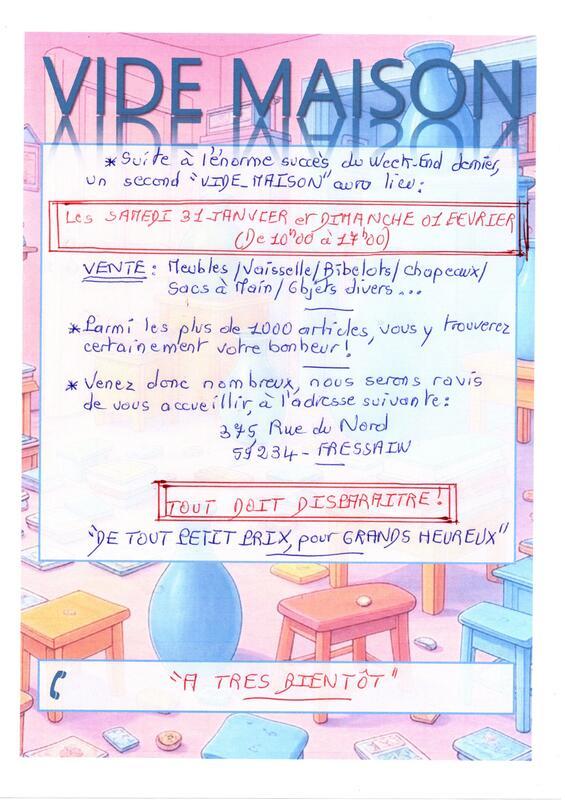 VIDE MAISON
* Suite à l'énorme succès du Week-End dernier,
un second "VIDE-MAISON" aura lieu :
Les SAMEDI 31 JANVIER et DIMANCHE 01 FEVRIER
(De 10h00 à 17h00)
VENTE : Meubles / Vaisselle / Bibelots / chapeaux /
Sacs à Main / Objets divers ...
* Parmi les plus de 1000 articles, vous y trouverez
certainement votre bonheur !
* Venez donc nombreux, nous serons ravis
de vous accueillir, à l'adresse suivante :
375 Rue du Nord
59234 - FRESSAIN
TOUT DOIT DISPARAITRE !
"DE TOUT PETIT PRIX, pour GRANDS HEUREUX"
"A TRES BIENTÔT"